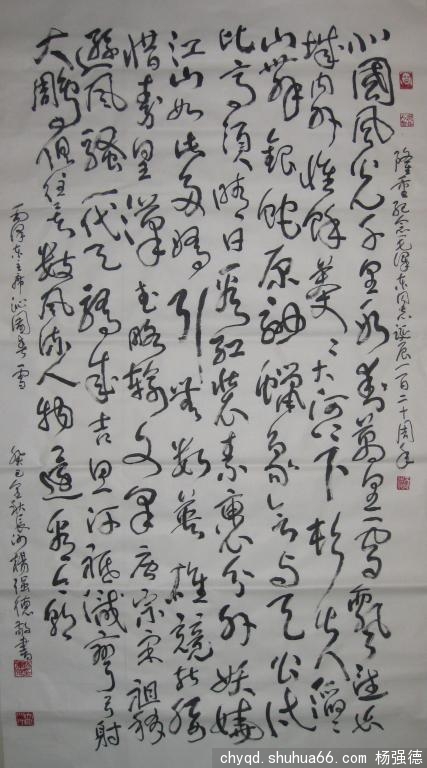 隆重纪念毛泽东同志诞辰一百二十周年
北國风光千里冰封萬里雪飘望长
城内外惟餘莽〻大河上下顿失滔〻
山舞银蛇原驰蠟象欲与天公试
比高须晴日看红装素裹分外妖娆
江山如此多娇引無数英雄竞折腰
惜秦皇漢武略输文采唐宗宋祖稍
逊风骚一代天骄成吉思汗祗識彎弓射
大雕俱往矣数风流人物還看今朝
毛泽东主席沁園春雪
癸巳金秋长沙楊强德敬書
chyqd.shuhua66.com 杨强德